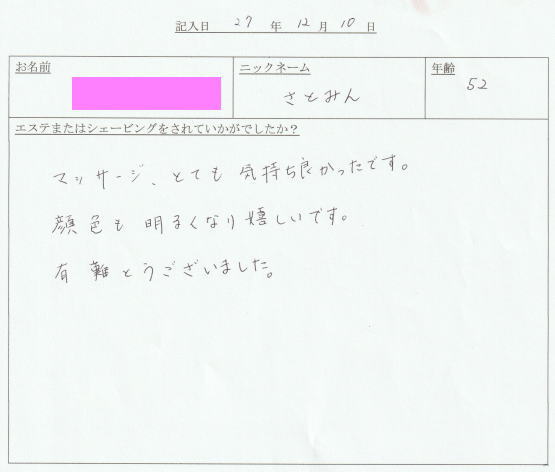 記入日 27 年 12 月 10 日
お名前 ニックネーム 年齢
さとみん 52
エステまたはシェービングをされていかがでしたか？
マッサージ、とても気持ち良かったです。
顔色も明るくなり嬉しいです。
有難とうございました。